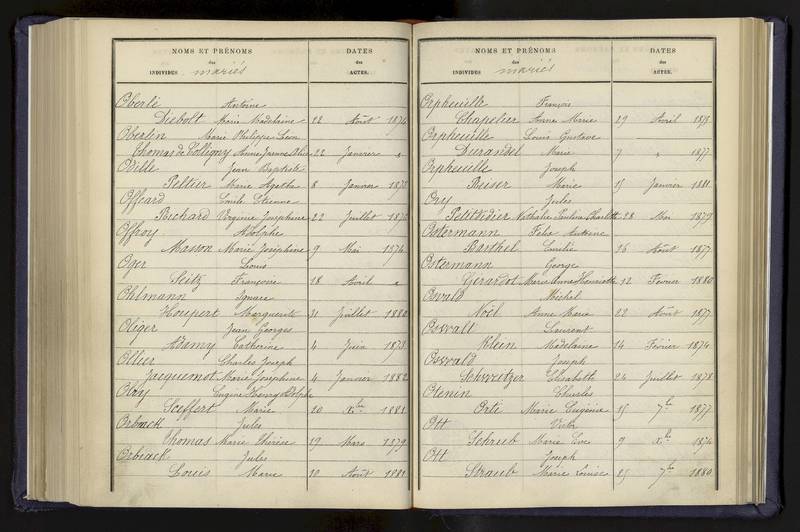 NOMS ET PRÉNOMS
des
INDIVIDUS mariés
DATES
des
ACTES.
Oberlé Antoine
Diebolt Marie Madeleine 22 Août 1874
Oberlin Marie Philippe Léon
Thomas de Colligny Anne Jeanne Alice 22 Janvier "
Odille Jean Baptiste
Peltier Marie Agathe 8 Janvier
Offeard Emile Etienne
Richard Virginie Joséphine 22 Juillet
Offroy Adolphe
Masson Marie Joséphine 9 Mai 1874
Oger Louis
Seitz Françoise 18 Avril "
Ohlmann Ignace
Houpert Marguerite 31 Juillet 1880
Oliger Jean Georges
Adamy Catherine 4 Juin 1873
Ollier Charles Joseph
Jacquemot Marie Joséphine 4 Janvier 1882
Olry Eugène Henry Adolphe
Seiffert Marie 20 Xbre 1881
Orback Jules
Thomas Marie Thérèse 19 Mars 1879
Orback Jules
Louis Marie 10 Août 1881
NOMS ET PRÉNOMS
des
INDIVIDUS mariés
DATES
des
ACTES.
Orpheuille François
Chapelier Anne Marie 29 Avril
Orpheuille Louis Gustave
Durandel Marie 7 " 1877
Orpheuille Joseph
Reiser Marie 15 Janvier 1881
Ory Jules
Petitdidier Nathalie Pauline Charlotte 28 Mai 1879
Ostermann Félix Antoine
Barthel Emilie 26 Août 1877
Ostermann George
Gérardot Marie Anne Henriette 12 Février 1880
Oswald Michel
Noël Anne Marie 22 Août 1877
Oswalt Laurent
Klein Madelaine 14 Février 1874
Osswald Joseph
Schweitzer Elisabeth 24 Juillet 1878
Otenin Charles
Orli Marie Eugénie 15 7bre 1877
Ott Victor
Schrub Marie Eve 9 Xbre 1874
Ott Joseph
Straub Marie Louise 25 7bre 1880